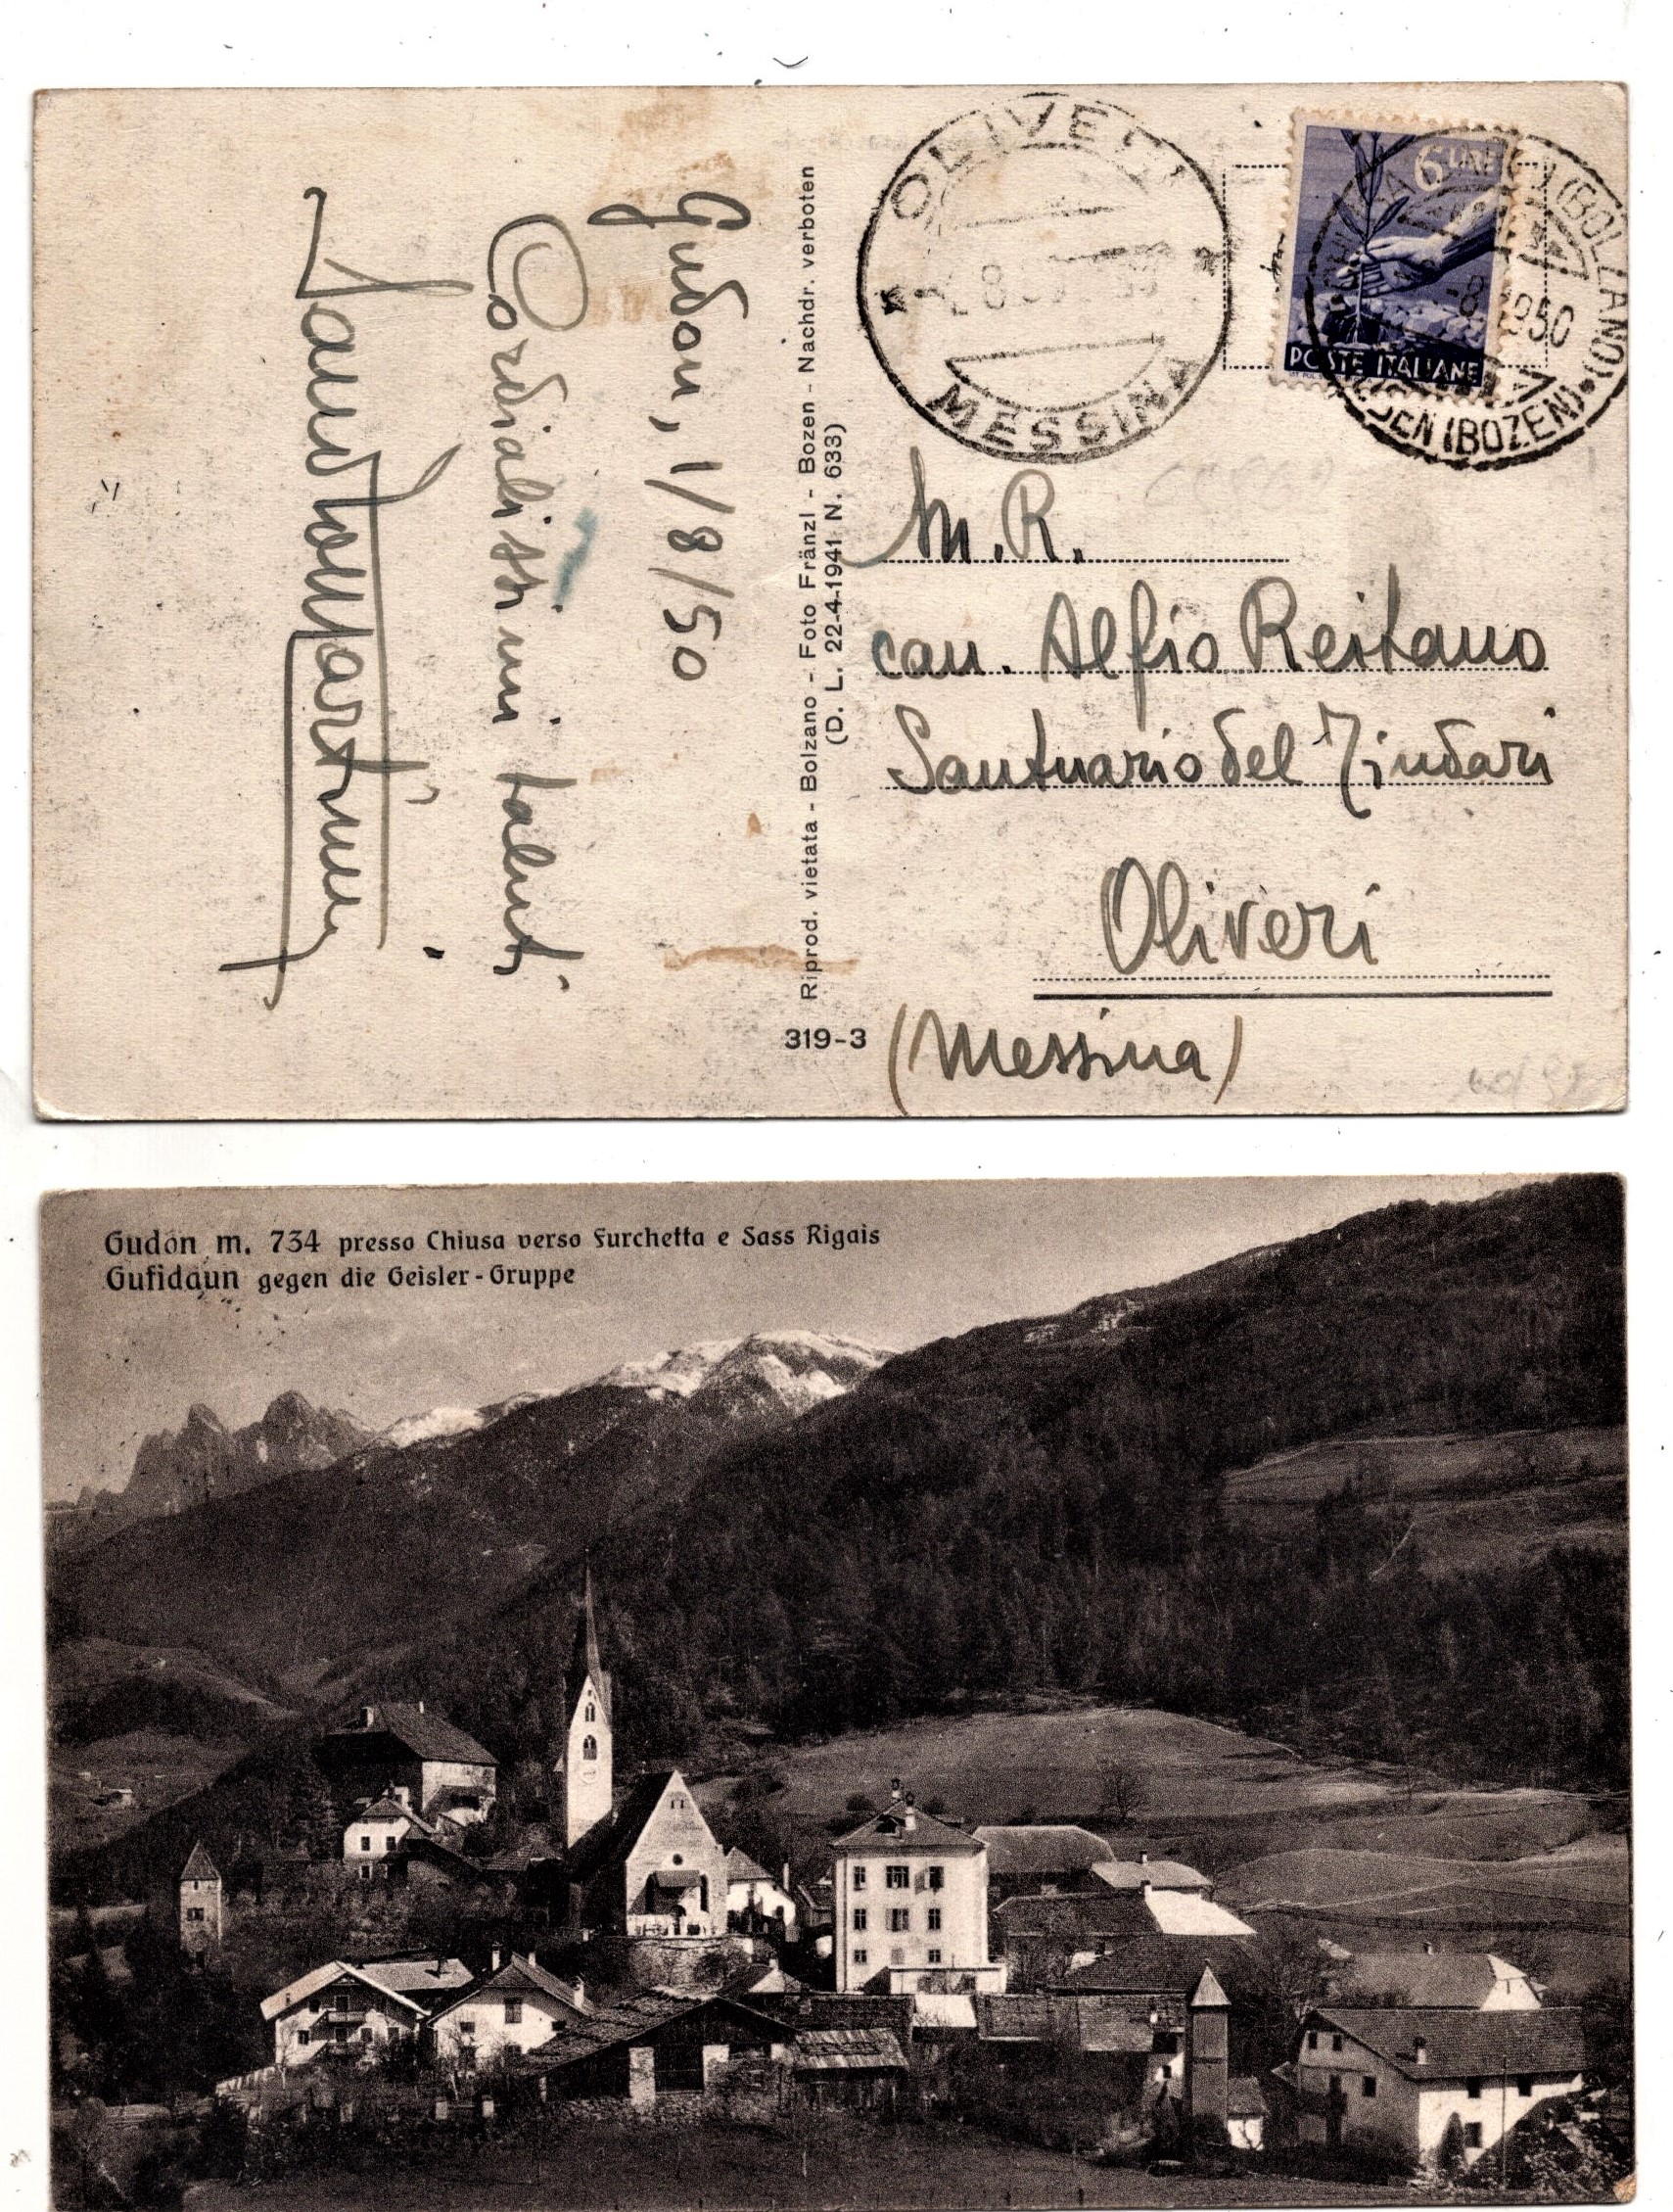 Gudon, 1/8/50
Cordialissimi saluti
Riprod. vietata - Bolzano - Foto Fränzl - Bozen - Nachdr. verboten
(D. L. 22-4-1941 N. 633)
319-3
OLIVERI
MESSINA
6 LIRE
POSTE ITALIANE
(BOLZANO)
1950
(BOZEN)
M. R.
can. Alfio Reitano
Santuario del Tindari
Oliveri
(Messina)
Gudon m. 734 presso Chiusa verso Furchetta e Sass Rigais
Gufidaun gegen die Geisler-Gruppe